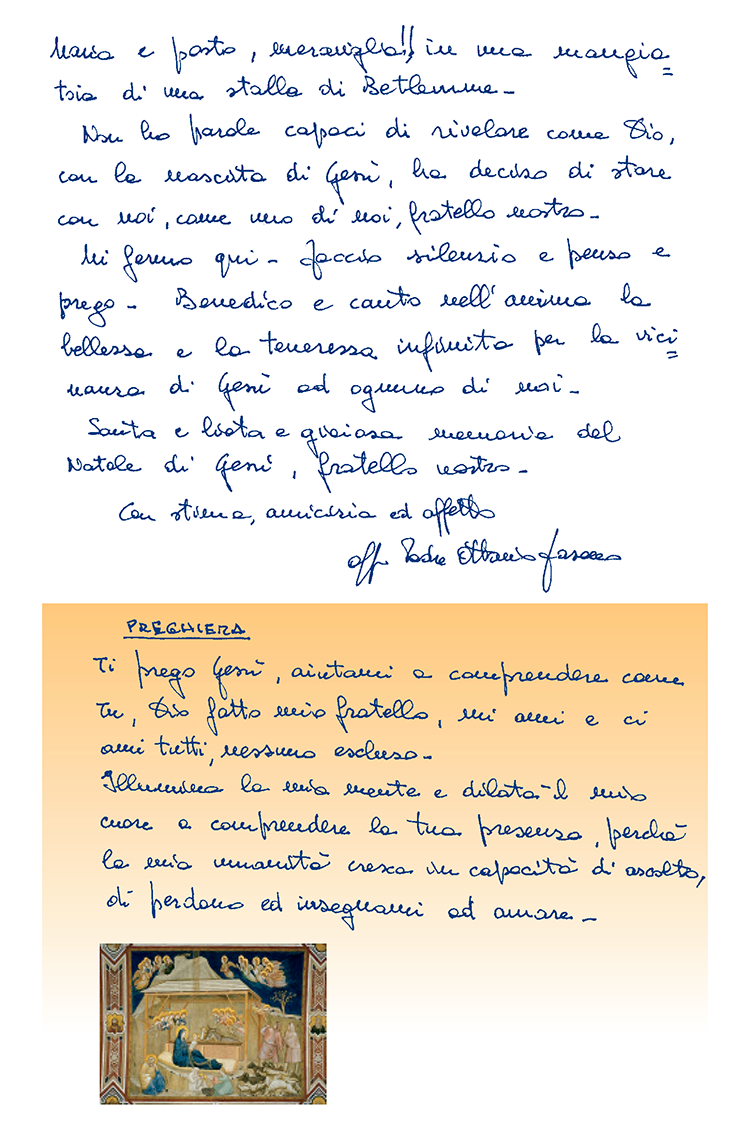 Maria e posto, meraviglia!! in una mangia=
toia di una stalla di Betlemme-
Non ho parole capaci di rivelare come Dio,
con la nascita di Gesù, ha deciso di stare
con noi, come uno di noi, fratello nostro-
Mi fermo qui- Faccio silenzio e penso e
prego- Benedico e canto nell'anima la
bellezza e la tenerezza infinita per la vici=
nanza di Gesù ad ognuno di noi-
Santa e lieta e gioiosa memoria del
Natale di Gesù, fratello nostro-
Con stima, amicizia ed affetto
aff Padre Ottavio
PREGHIERA
Ti prego Gesù, aiutami a comprendere come
Tu, Dio fatto mio fratello, mi ami e ci
ami tutti, nessuno escluso-
Illumina la mia mente e dilata il mio
cuore a comprendere la tua presenza, perchè
la mia umanità cresca in capacità di ascolto,
di perdono ed insegnami ad amare-